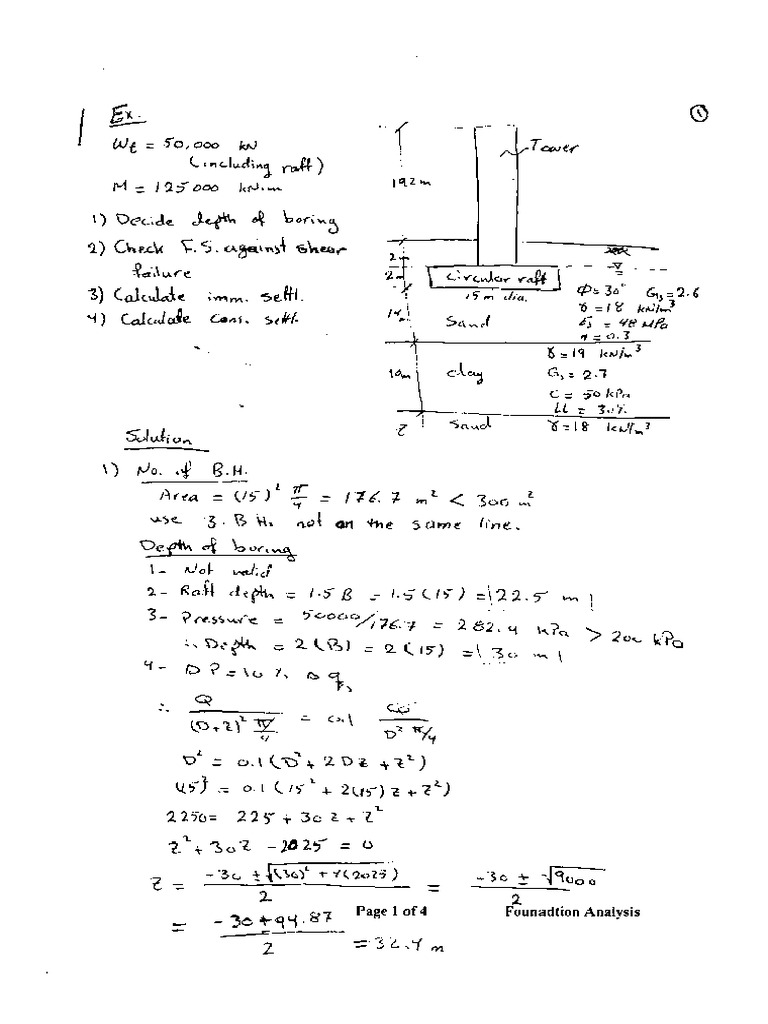 ①
Ex.
Wt = 50,000 kN
(including raft)
M = 125000 kN.m
1) Decide depth of boring
2) Check F.S. against shear
failure
3) Calculate imm. settl.
4) Calculate cons. settl.
Tower
192m
2
2m
circular raft
15m dia.
φ=30° Gs=2.6
γ=18 kN/m³
Es = 48 MPa
= 0.3
14m
Sand
γ=19 kN/m³
10m
clay
Gs = 2.7
C = 50 kPa
LL = 30%
Z
Sand
γ=18 kN/m³
Solution
1) No. of B.H.
Area = (15)² π/4 = 176.7 m² < 300 m²
use 3. B H. not on the same line.
Depth of boring
1- Not valid
2- Raft depth = 1.5 B = 1.5(15) = 22.5 m
3- Pressure = 50000/176.7 = 282.4 kPa > 200 kPa
∴ Depth = 2(B) = 2(15) = 30 m
4- DP = 10% Δq
∴ Q / (D+Z)² π/4 = 0.1 / D² π/4
D² = 0.1(D² + 2DZ + Z²)
15² = 0.1(15² + 2(15)Z + Z²)
2250 = 225 + 30Z + Z²
Z² + 30Z - 2025 = 0
Z = -30 ± √(30)² + 4(2025) / 2 = -30 ± √9000 / 2
= -30 + 94.87 / 2 = 32.4 m
Page 1 of 4
Founadtion Analysis